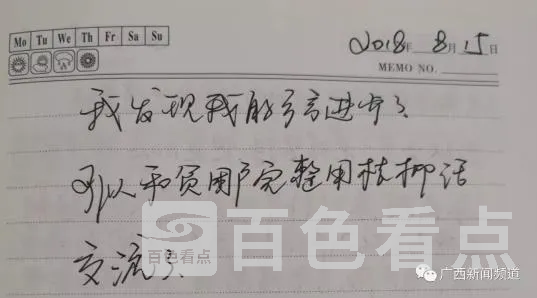 Mo Tu We Th Fr Sa Su
2018年 8月15日
MEMO NO.
我发现我的方言进步了、
可以和贫困户完整用桂柳话
交流了、
百色看点
百色看点
广西新闻频道